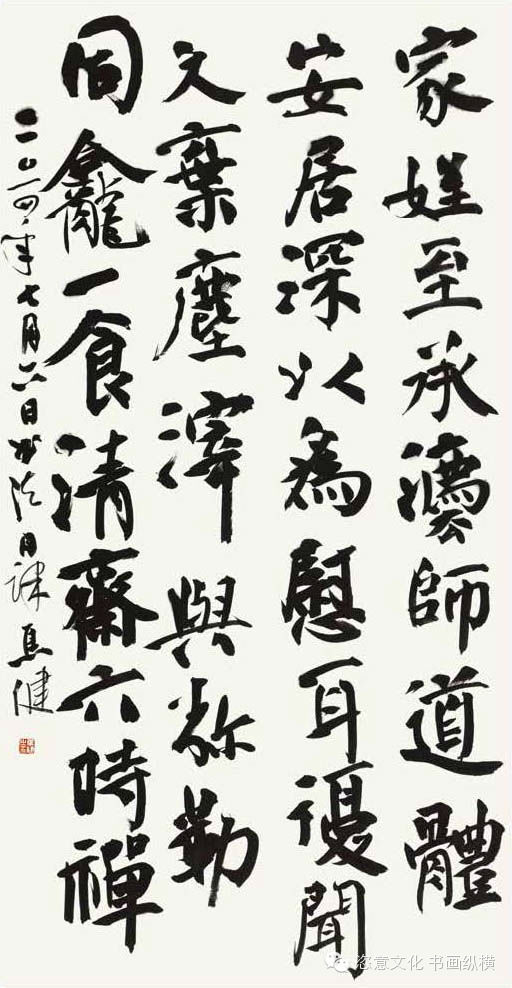 家姪至承灋師道體
安居深以為慰耳復聞
久棄塵滓與弥勒
同龕一食清齋六時禪
二〇一四年七月六日书法日课马健
恣意文化 书画纵横